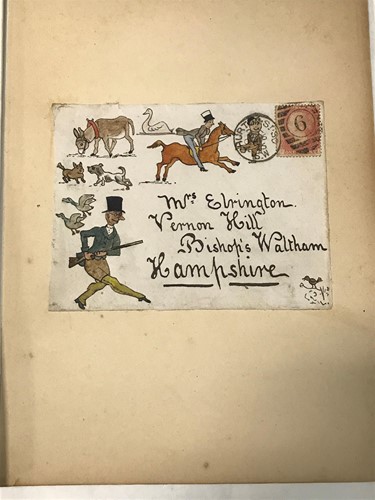 6
Mrs Elrington.
Vernon Hill
Bishop's Waltham
Hampshire